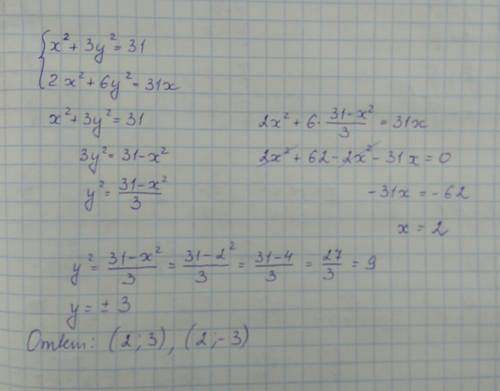 x² + 3y² = 31
2x² + 6y² = 31x
x² + 3y² = 31
3y² = 31 - x²
y² = (31 - x²)/3
2x² + 6 · (31 - x²)/3 = 31x
2x² + 62 - 2x² - 31x = 0
-31x = -62
x = 2
y² = (31 - x²)/3 = (31 - 2²)/3 = (31 - 4)/3 = 27/3 = 9
y = ± 3
Ответ: (2; 3), (2; -3)